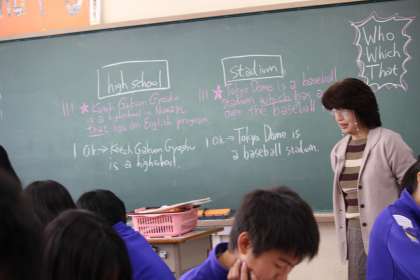 high school
!!! ★ Koch Gakuen Gyoshu
is a highschool in Nankoku
that has an English program.
1 OK → Koch Gakuen Gyoshu
is a highschool.
stadium
!!! ★ Tokyo Dome is a baseball
stadium
over the baseball
1 OK → Tokyo Dome is
a baseball stadium.
Who
Which
That